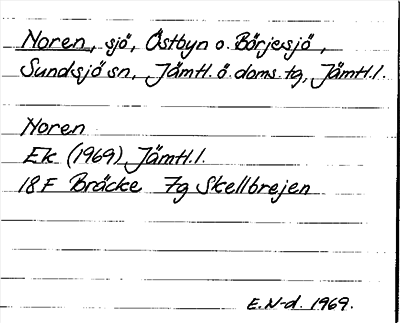 Noren, sjö, Östbyn o. Börjesjö,
Sundsjö sn, Jämtl. ö. doms. tg, Jämtl. l.
Noren
Ek (1969) Jämtl. l.
18F Bräcke 7g Skellbrejen
E. N-d. 1969.